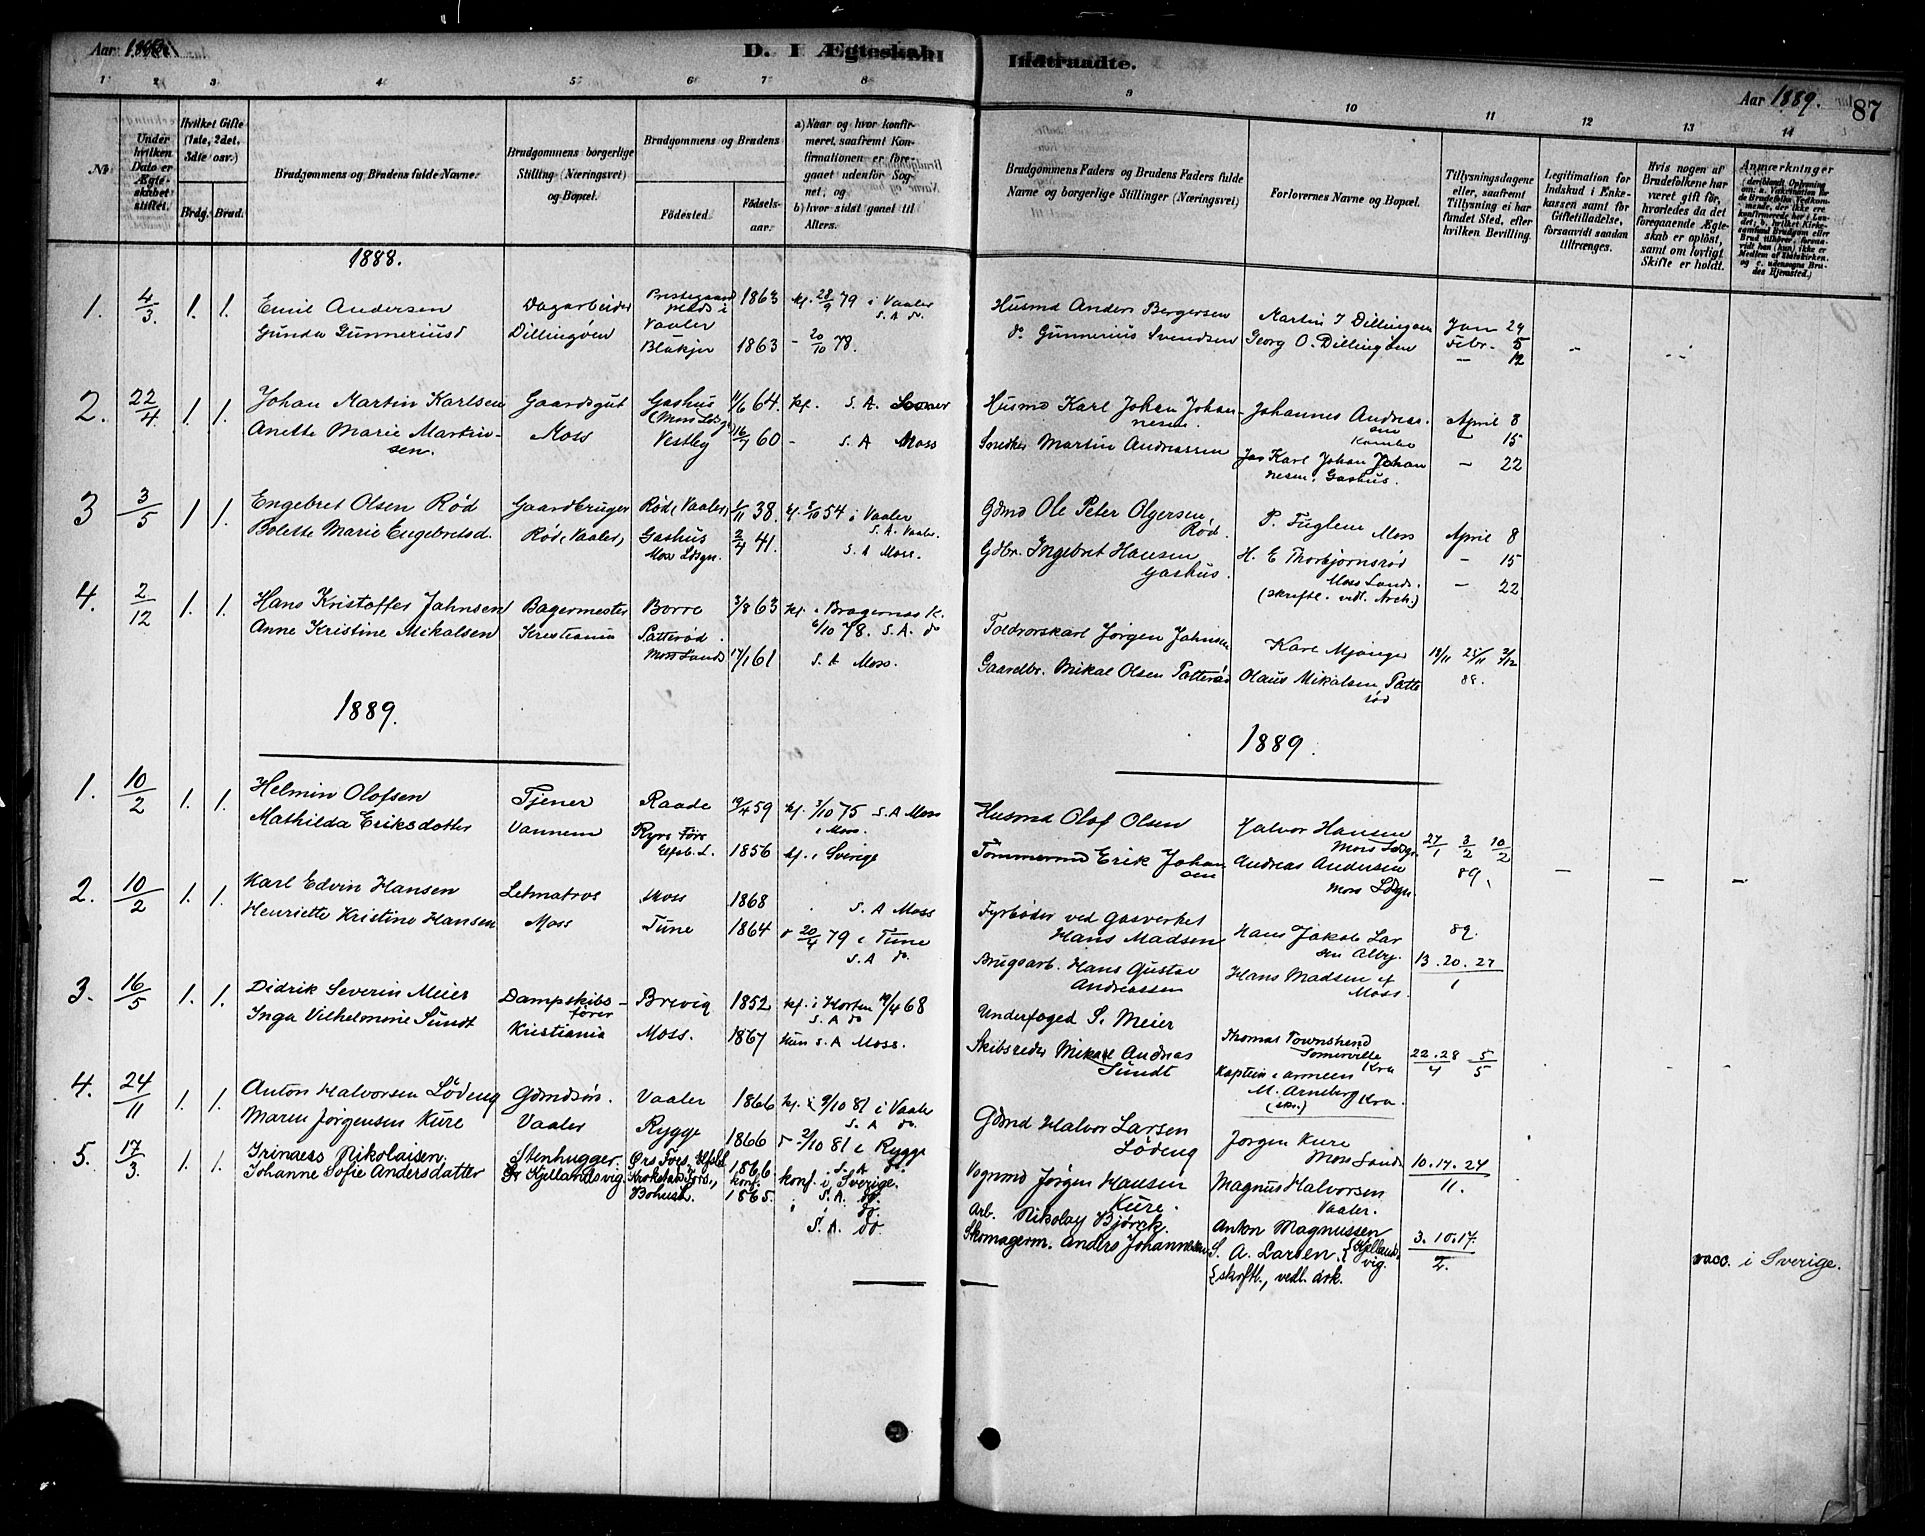 Aar
D. I Ægteskab
Indtraadte.
Aar 1889.
87
1
2
3
4
5
6
7
8
9
10
11
12
13
14
No
Under hvilken Dato er Ægteskabet stiftet.
Hvilket Gifte (1ste, 2det, 3die osv.)
Brdg.
Brud.
Brudgommens og Brudens fulde Navne.
Brudgommens borgerlige Stilling (Næringsvei) og Bopæl.
Brudgommens og Brudens
Fødested.
Fødselsaar.
a) Naar og hvor konfirmeret, saafremt Konfirmationen er foregaaet udenfor Sognet; og
b) hvor sidst gaaet til Alters.
Brudgommens Faders og Brudens Faders fulde Navne og borgerlige Stillinger (Næringsvei)
Forlovernes Navne og Bopæl.
Tillysningsdagene eller, saafremt Tillysning ei har fundet Sted, efter hvilken Bevilling.
Legitimation for Indskud i Enkekassen samt for Giftetilladelse, forsaavidt saadan tiltrænges.
Hvis nogen af Brudefolkene har været gift før, hvorledes da det foregaaende Ægteskab er opløst, samt om lovligt Skifte er holdt.
Anmærkninger
1888.
1. 4/3 1. 1. Emil Andersen
Gunda Gunneriusd
Dagarbeider
Dillingøen
Prestegaard
Plads i
Vaaler 1863
Blakjer 1863
kf. 28/9 79 i Vaaler
S. A. do.
- 20/10 78.
Husmd Anders Bergersen
do Gunnerius Svendsen
Martin J Dillingøen
Georg O. Dillingøen
Jan 29
Febr. 5
- 12
2. 22/4. 1. 1. Johan Martin Karlsen
Anette Marie Martinsen.
Gaardsgut
Moss
Gashus
(Moss Ldsgn) 11/6 64.
Vestby 16/7 60
kf. S. A. Soner
- S. A Moss
Husmd Karl Johan Johannesen.
Snedker Martin Andreassen
Johannes Andreassen
Kambo
Jas Karl Johan Johannesen, Gashus.
April 8
- 15
- 22
3 3/5 1 1. Engebret Olsen Rød
Bolette Marie Engebretsd.
Gaardbruger
Rød, Vaaler,
Rød, Vaaler, 5/11 38.
Gashus
Moss Ldsgn. 2/4 41.
kf. 5/10 54 i Vaaler
S. A. Vaaler.
S. A Moss.
Gdmd Ole Peter Olgersen
Rød.
Gdbr. Ingebret Hansen
Gashus.
P. Fuglem Moss
H. E Thorbjørnsrød
Moss Lands.
(skriftl. vedl. Arch.)
April 8
- 15
- 22
4. 2/12 1. 1. Hans Kristoffer Jahnsen
Anne Kristine Mikalsen
Bagermester
Kristiania
Borre 3/8 63
Patterød.
Moss Lands 17/1 61
kf. i Bragernæs K.
6/10 78. S. A. do
S. A Moss.
Toldrorskarl Jørgen Jahnsen
Gaardbr. Mikal Olsen Patterød
Karl Mjanger
Olaus Mikalsen Patterød
18/11 25/11 2/12
88.
1889.
1889.
1. 10/2 1. 1. Helmin Olofsen
Mathilda Eriksdatter
Tjener
Vannem
Raade 19/4 59
Ryrs Førs
Elfsb. L. 1856
kf. 3/10 75 S. A Moss
i Moss.
kf. i Sverige
Husmd Olof Olsen
Tømmermd Erik Johansen
Halvor Hansen
Moss Ldsgn
Andreas Andersen
Moss Ldgn.
27/1 3/2 10/2
89.
2. 10/2 1. 1. Karl Edvin Hansen
Henriette Kristine Hansen
Letmatros
Moss
Moss 1868
Tune 1864
S. A Moss
20/4 79 i Tune
S. A do.
Fyrbøder ved Gasverket
Hans Madsen
Brugsarb. Hans Gustav
Andreassen
Hans Jakob Larsen Alby.
Hans Madsen af
Moss.
89.
13. 20. 27
1
3. 16/5 1. 1. Didrik Severin Meier
Inga Vilhelmine Sundt
Dampskibsfører
Kristiania
Brevig 1852
Moss. 1867
kf. i Horten 19/4 68
S. A do
Hun S. A Moss.
Underfoged S. Meier
Skibsreder Mikael Andreas
Sundt
Thomas Townshend
Somerville
Kra
Kaptein i armeen
M. Arneberg Kra.
(skr.)
22. 28/4 5/5
4. 24/11 1. 1. Anton Halvorsen Lødeng
Maren Jørgensen Kure
Gdmdsøn.
Vaaler
Vaaler 1866
Rygge 1866
kf. i 9/10 81 i Vaaler
S. A do.
2/10 81 i Rygge
S. A do.
Gdmd Halvor Larsen
Lødeng
Vognmd Jørgen Hansen
Kure.
Jørgen Kure
Moss Lands
Magnus Halvorsen
Vaaler.
10. 17. 24
11.
5. 17/3. 1. 1. Irinæus Nikolaisen.
Johanne Sofie Andersdatter
Stenhugger.
Gr Kjellandsvig.
Ørs Fors, Elfsb. 1866.
Krokstad Fors., konf.
Bohusl. 1865.
konf. i Sverige.
S. A. do.
do.
S. A. do.
Arb. Nikolay Bjørck.
Skomagerm. Anders Johannesen
Anton Magnussen
S. A. Larsen. {Kjellandsvig.
{skrftl., vedl. ark.
3. 10. 17.
2.
vacc. i Sverige.